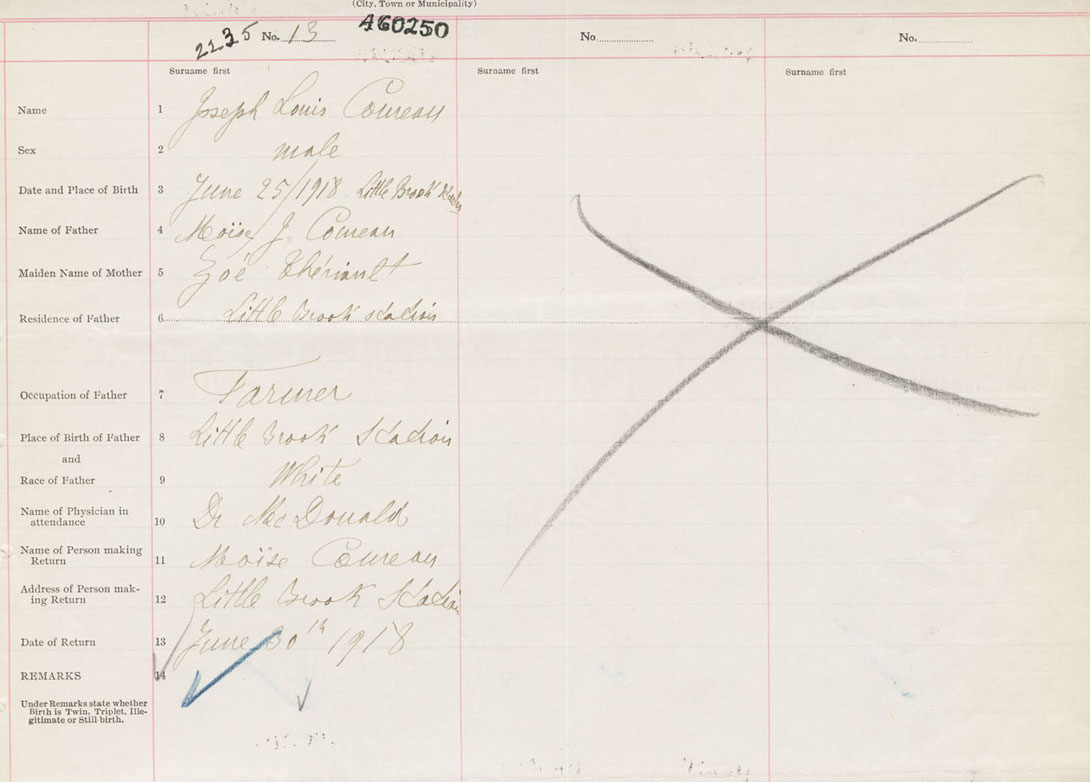 (City, Town or Municipality)
2235 No. 13 460250 No. No.
Surname first Surname first Surname first
Name 1 Joseph Louis Comeau
Sex 2 male
Date and Place of Birth 3 June 25/1918 Little Brook
Name of Father 4 Moïse J Comeau
Maiden Name of Mother 5 Zoé Thériault
Residence of Father 6 Little Brook station
Occupation of Father 7 Farmer
Place of Birth of Father 8 Little Brook Station
and
Race of Father 9 White
Name of Physician in
attendance 10 Dr McDonald
Name of Person making
Return 11 Moïse Comeau
Address of Person mak-
ing Return 12 Little Brook Station
Date of Return 13 June 30th 1918
REMARKS 14
Under Remarks state whether
Birth is Twin, Triplet, Ille-
gitimate or Still-birth.